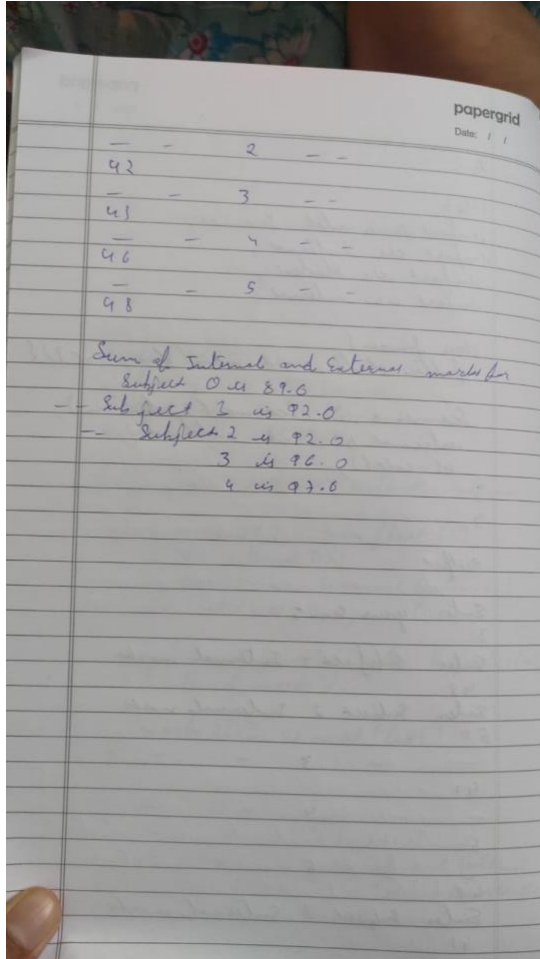 papergrid
Date: / /
— - 2 - -
42
— - 3 - -
45
— - 4 - -
46
— - 5 - -
48
Sum of Internal and External marks for
Subject 0 is 89.0
-- Subject 1 is 92.0
-- Subject 2 is 92.0
3 is 96.0
4 is 97.0